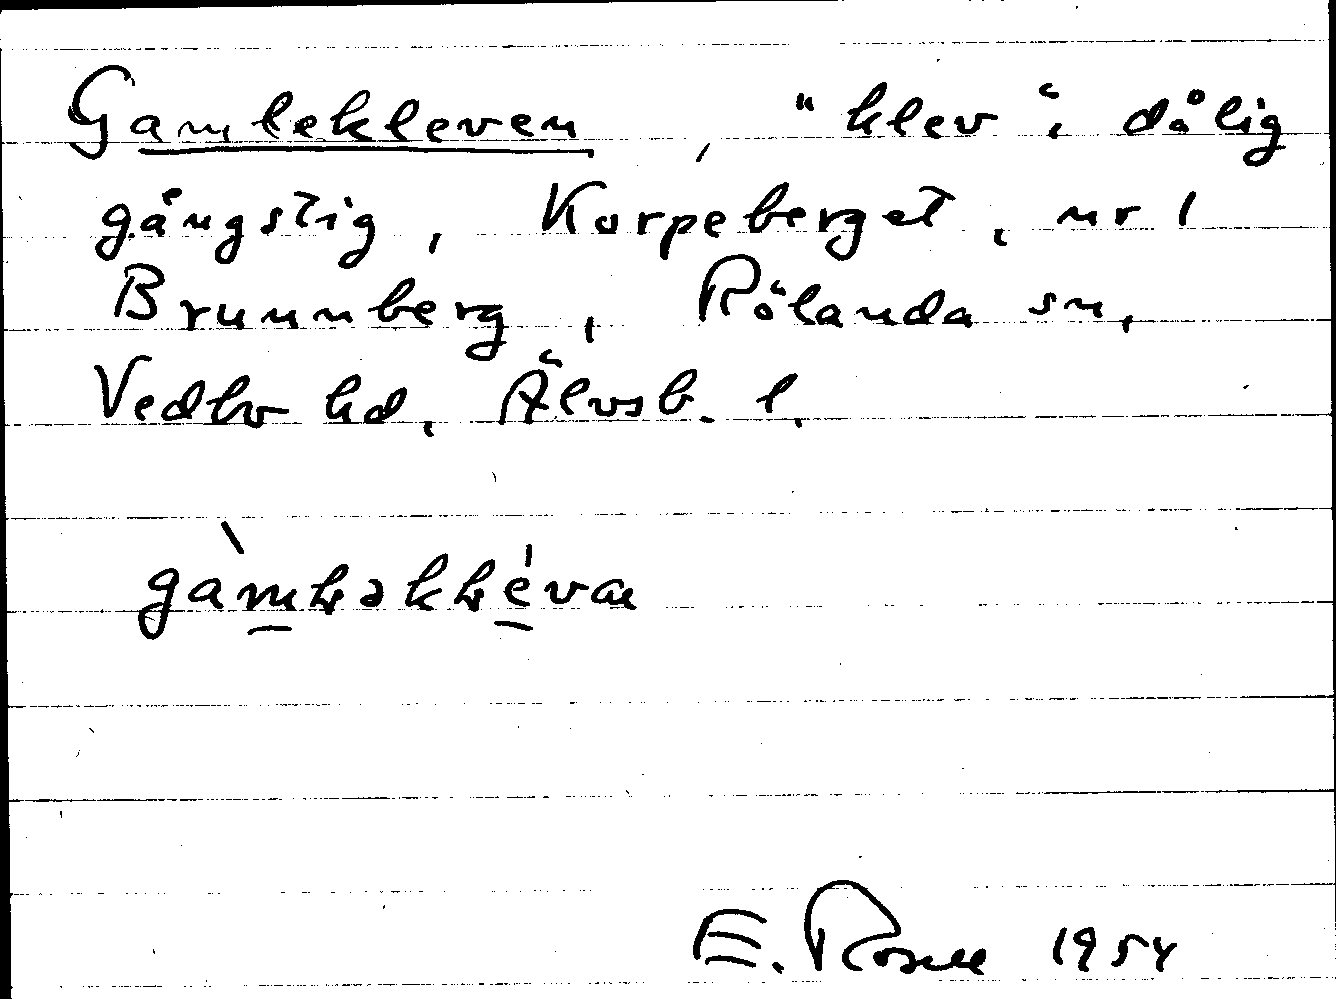 Gamlekleven, "klev": dålig
gångstig, Korpeberget, nr 1
Brunnberg, Rölanda sn,
Vedbo hd, Älvsb. l.
E. Rosell 1954